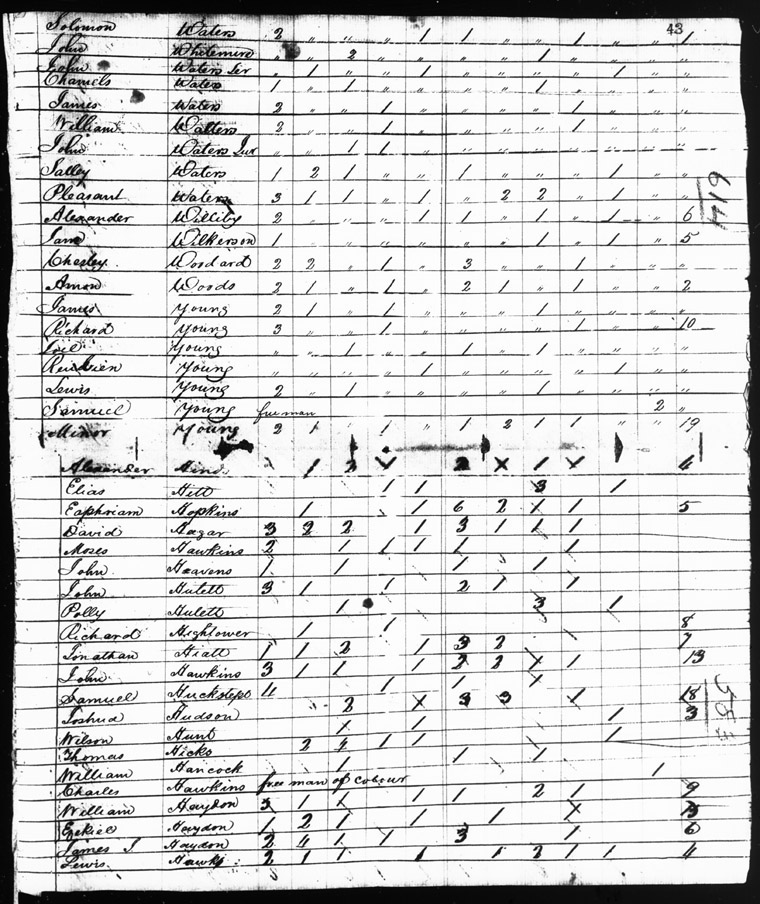 43
Solomon Waters 2 " " " " 1 1 " " 1 " " 1
John Whitemire " " 2 " " " " " 1 " " " "
John Waters Ser " 1 " " 1 " " " " 1 " "
Charnels Waters 1 " 1 " " " " " 1 " " "
James Waters 2 " " 1 " " " " " 1 " " "
William Walters 2 " " 1 " " " " 1 " "
John Waters Jur " " 1 1 " " " " " " "
Salley Waters 1 2 1 " " 1 " " " 1 " "
Pleasant Waters 3 1 1 " 1 " 2 2 " 1 " "
Alexander Willity 2 " " " 1 1 " 1 " 1 " 6
Jane Wilkerson 1 " " " " " 1 " 1 " 5
Chesley Woodard 2 2 " 1 " 3 " " 1 " " "
Amon Woods 2 1 " 1 " 2 1 " 1 " " 2
James Young 2 1 " 1 " " " " 1 " " " "
Richard Young 3 " " 1 " " " " " 1 " " 10
Young " " 1 " " 1 " 1 " " " "
Young " " " " 1 " " " " 1 " "
Lewis Young 2 " 1 " " " " 1 " " " "
Samuel Young free man 2 "
Minor Young 2 1 " 1 " 1 2 1 1 " " 19
614
Alexander Hinds 1 2 2 1 4
Elias Hill 1 1 3 1
Eaphriam Hopkins 1 1 6 2 1 1 5
David Hagar 3 2 2 1 3 1 1 1
Moses Hawkins 2 1 1 1 1 1
John Heavens 1 1 1 1
John Hulett 3 1 1 2 1 1
Polly Hulett 1 3 1
Richard Hightower 1 1 8
Jonathan Hiatt 1 1 2 1 3 2 1 7
John Hawkins 3 1 1 1 2 2 1 1 13
Samuel Huckstept 4 1 1 18
Joshua Hudson 2 3 3 1 3
Wilson Hunt 1 1 1
Thomas Hicks 2 4 1 1 1
William Hancock 1 1 1 1
Charles Hawkins free man of colour
William Haydon 3 1 1 1 1 2 1 9
Ezekiel Haydon 1 2 1 1 1
James J Haydon 2 4 1 1 3 1 6
Lewis Hawks 2 1 1 1 1 2 1 1 4